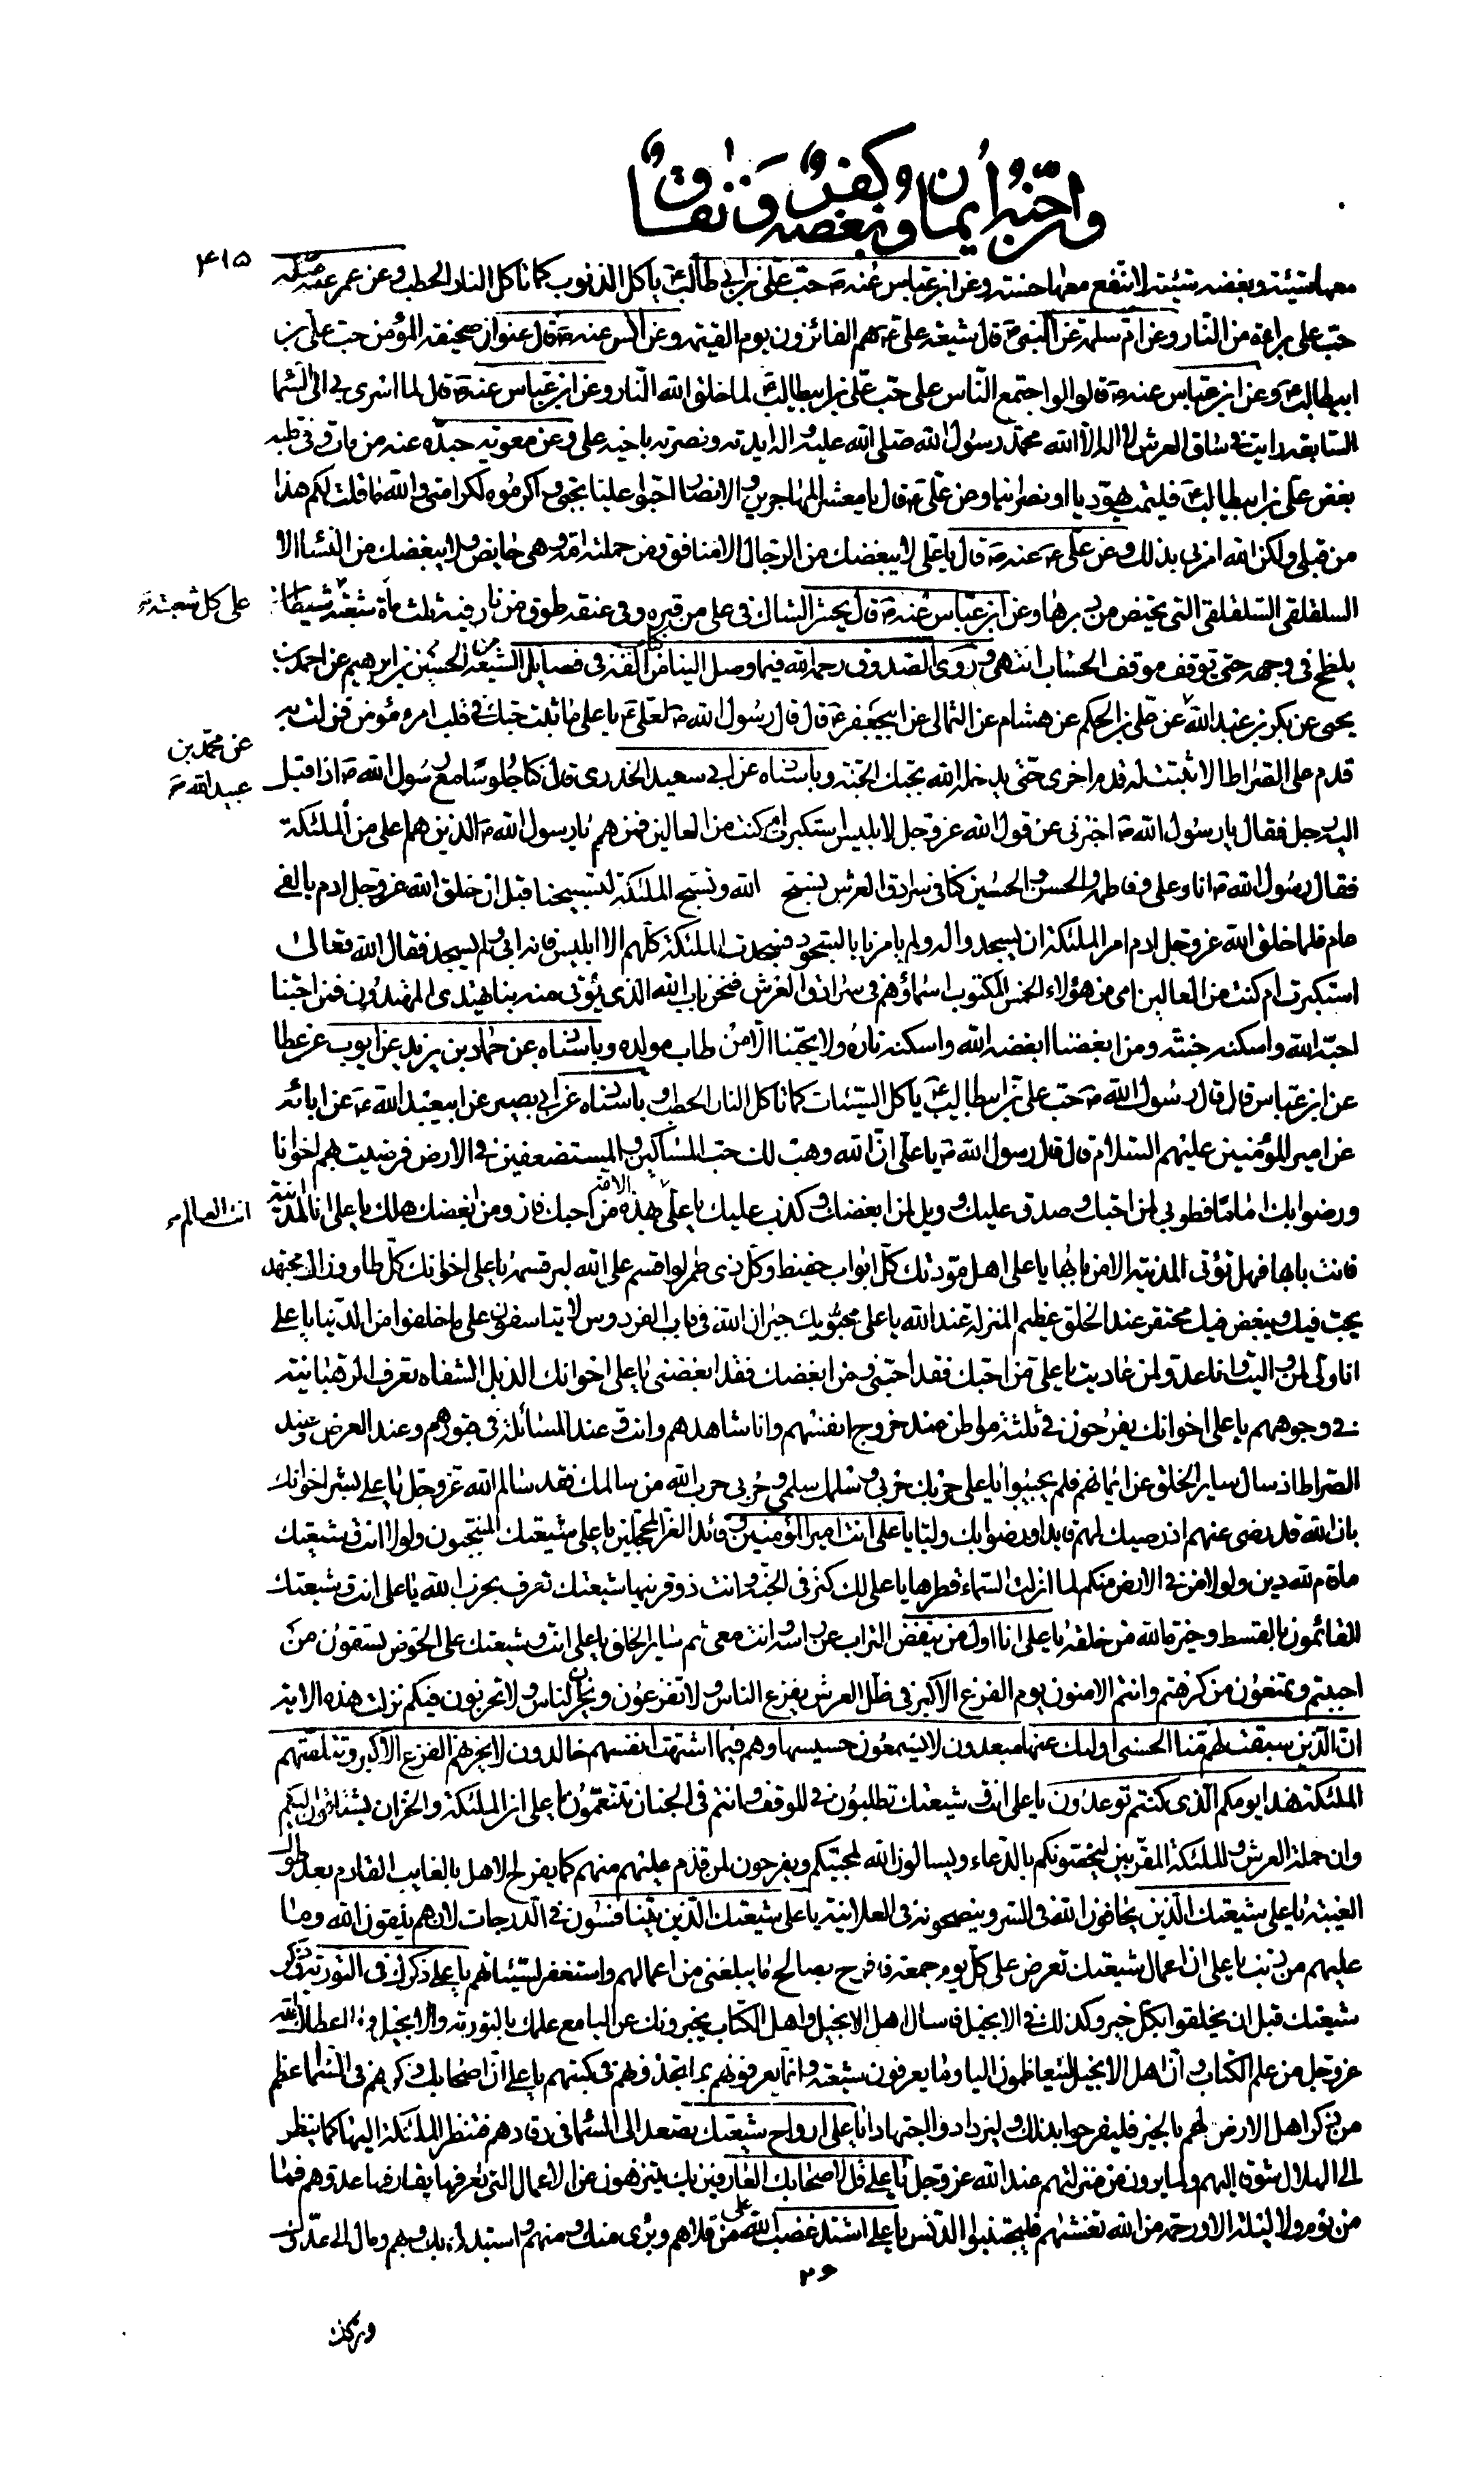 وان حبه ايمان وكفر وبغضه ونفاق
۴۱۵
معها سيئة وبغضه سيئة لا تنفع معها حسنة وعن ابن عباس عنه ص حب علي بن ابي طالب ع ياكل الذنوب كما تاكل النار الحطب وعن عمر عنه ص
حب علي براءة من النار وعن ام سلمة عن النبي ص قال شيعة علي ع هم الفائزون يوم القيمة وعن انس عنه ص قال عنوان صحيفة المؤمن حب علي بن
ابيطالب ع وعن ابن عباس عنه ص قال لو اجتمع الناس على حب علي بن ابيطالب ع لما خلق الله النار وعن ابن عباس عنه ص قال لما اسرى بي الى السما
السابعة رايت في ساق العرش لا اله الا الله محمد رسول الله صلى الله عليه واله ايدته ونصرته باخيه علي وعن معوية بن حيدة عنه من مات وفي قلبه
بغض علي بن ابيطالب ع فليمت يهوديا او نصرانيا وعن علي ع قال يا معشر المهاجرين والانصار احبوا عليا بحبي واكرموه لكرامتي والله ما قلت لكم هذا
من قبلي ولكن الله امرني بذلك وعن علي ع عنه ص قال يا علي لا يبغضك من الرجال الا منافق ومن حملته امه وهي حايض ولا يبغضك من النساء الا
السلقلقي السلقلقي التي تحيض من دبرها وعن ابن عباس عنه ص قال يحشر الشاك في علي من قبره وفي عنقه طوق من نار فيه ثلث مأة شعبة شيطان
على كل شعبة منه
يلطخ في وجهه حتى يوقف موقف الحساب انتهى وروى الصدوق رحمه الله فيما وصل الينا من كتاب الفه في فضايل الشيعة عن الحسين بن ابراهيم عن احمد بن
يحيى عن بكر بن عبد الله عن علي بن الحكم عن هشام عن الثمالي عن ابيجعفر ع قال قال رسول الله ص لعلي ع يا علي ما ثبت حبك في قلب امرء مؤمن فزلت به
عن محمد بن
عبيد الله
قدم على الصراط الا ثبتت له قدم اخرى حتى يدخله الله بحبك الجنة وباسناده عن ابي سعيد الخدري قال كنا جلوسا مع رسول الله ص اذ اقبل
اليه رجل فقال يا رسول الله ص اخبرني عن قول الله عز وجل لابليس استكبرت ام كنت من العالين فمن هم يا رسول الله ص الذين هم اعلى من الملئكة
فقال رسول الله ص انا وعلي وفاطمة والحسن والحسين كنا في سرادق العرش نسبح الله وتسبح الملئكة لتسبيحنا قبل ان خلق الله عز وجل ادم بالفي
عام فلما خلق الله عز وجل ادم امر الملئكة ان يسجدوا له ولم يامرنا بالسجود فسجدت الملئكة كلهم الا ابليس فانه ابى ولم يسجد فقال الله تعالى
استكبرت ام كنت من العالين اى من هؤلاء الخمس المكتوب اسماؤهم في سرادق العرش فنحن باب الله الذي يؤتى منه بنا يهتدي المهتدون فمن احبنا
احبه الله واسكنه جنته ومن ابغضنا ابغضه الله واسكنه ناره ولا يحبنا الا من طاب مولده وباسناده عن حماد بن يزيد عن ايوب عن عطا
عن ابن عباس قال قال رسول الله ص حب علي بن ابيطالب ع ياكل السيئات كما تاكل النار الحطب وباسناده عن ابي بصير عن ابيعبد الله ع عن ابائه
عن امير المؤمنين عليهم السلام قال قال رسول الله ص يا علي ان الله وهب لك حب المساكين والمستضعفين في الارض فرضيت بهم اخوانا
ورضوا بك اماما فطوبى لمن احبك وصدق عليك وويل لمن ابغضك وكذب عليك يا علي انت العالم لهذه الامة من احبك فاز ومن ابغضك هلك يا علي انا المدينة
انت العالم
وانت بابها فهل تؤتى المدينة الا من بابها يا علي اهل مودتك كل اواب حفيظ وكل ذي طمر لو اقسم على الله لبر قسمه يا علي اخوانك كل طاو وزاك مجتهد
يحب فيك ويبغض فيك محتقر عند الخلق عظيم المنزلة عند الله يا علي محبوك جيران الله في دار الفردوس لا يتاسفون على ما خلفوا من الدنيا يا علي
انا ولي لمن واليت وانا عدو لمن عاديت يا علي من احبك فقد احبني ومن ابغضك فقد ابغضني يا علي اخوانك الذبل الشفاه تعرف الرهبانية
في وجوههم يا علي اخوانك يفرحون في ثلثة مواطن عند خروج انفسهم وانا شاهدهم وانت وعند المسائلة في قبورهم وعند العرض وعند
الصراط اذ سال ساير الخلق عن ايمانهم فلم يجيبوا يا علي حربك حربي وسلمك سلمي وحربي حرب الله من سالمك فقد سالم الله عز وجل يا علي بشر اخوانك
بان الله قد رضي عنهم اذ رضيك لهم قايدا ورضوا بك وليا يا علي انت امير المؤمنين وقائد الغر المحجلين يا علي شيعتك المنتجبون ولولا انت وشيعتك
ما قام لله دين ولولا من في الارض منكم لما انزلت السماء قطرها يا علي لك كنز في الجنة وانت ذو قرنيها شيعتك تعرف بحزب الله يا علي انت وشيعتك
القائمون بالقسط وخيرة الله من خلقه يا علي انا اول من ينفض التراب عن راسه وانت معي ثم ساير الخلق يا علي انت وشيعتك على الحوض تسقون من
احببتم وتمنعون من كرهتم وانتم الامنون يوم الفزع الاكبر في ظل العرش يفزع الناس ولا تفزعون ويحزن الناس ولا تحزنون فيكم نزلت هذه الاية
ان الذين سبقت لهم منا الحسنى اولئك عنها مبعدون لا يسمعون حسيسها وهم فيما اشتهت انفسهم خالدون لا يحزنهم الفزع الاكبر وتتلقيهم
الملئكة هذا يومكم الذي كنتم توعدون يا علي انت وشيعتك تطلبون في الموقف وانتم في الجنان تتنعمون يا علي ان الملئكة والخزان يشتاقون اليكم
وان حملة العرش والملئكة المقربين ليخصونكم بالدعاء ويسالون الله لمحبتكم ويفرحون لمن قدم عليهم منهم كما يفرح الاهل بالغايب القادم بعد طول
الغيبة يا علي شيعتك الذين يخافون الله في السر وينصحونه في العلانية يا علي شيعتك الذين يتنافسون في الدرجات لانهم يلقون الله وما
عليهم من ذنب يا علي ان اعمال شيعتك تعرض علي كل يوم جمعة فافرح بصالح ما يبلغني من اعمالهم واستغفر لسيئاتهم يا علي ذكرك في التورية وذكر
شيعتك قبل ان يخلقوا بكل خير وكذلك في الانجيل فاسال اهل الانجيل واهل الكتاب يخبرونك عن اليا مع علمك بالتورية والانجيل وما اعطاك الله
عز وجل من علم الكتاب وان اهل الانجيل ليتعاظمون اليا وما يعرفون شيعته وانما يعرفونهم بما يجدونهم في كتبهم يا علي ان اصحابك ذكرهم في السما اعظم
من ذكر اهل الارض لهم بالخير فليفرحوا بذلك وليزدادوا اجتهادا يا علي ارواح شيعتك تصعد الى السما في رقادهم فتنظر الملئكة اليها كما ينظر
الى الهلال شوقا اليهم ولما يرون من منزلتهم عند الله عز وجل يا علي قل لاصحابك العارفين بك يتنزهون عن الاعمال التي يعرفها يقارفها عدوهم فما
من يوم ولا ليلة الا ورحمة من الله تغشيهم فليجتنبوا الدنس يا علي اشتد غضب الله على من قلاهم وبرئ منك ومنهم واستبدل بك وبهم ومال الى عدوك
۲۶
وتركك